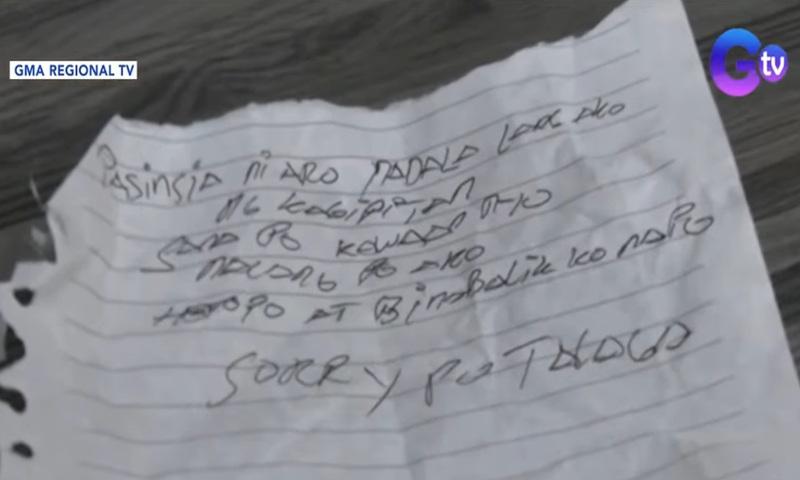 GMA REGIONAL TV
G tv
Pasinsia ni ARO nadala lang ako
ng kagipitan
Sana po kawaan nyo
nalang po ako
po at Binabalik ko na po
Sorry po talaga